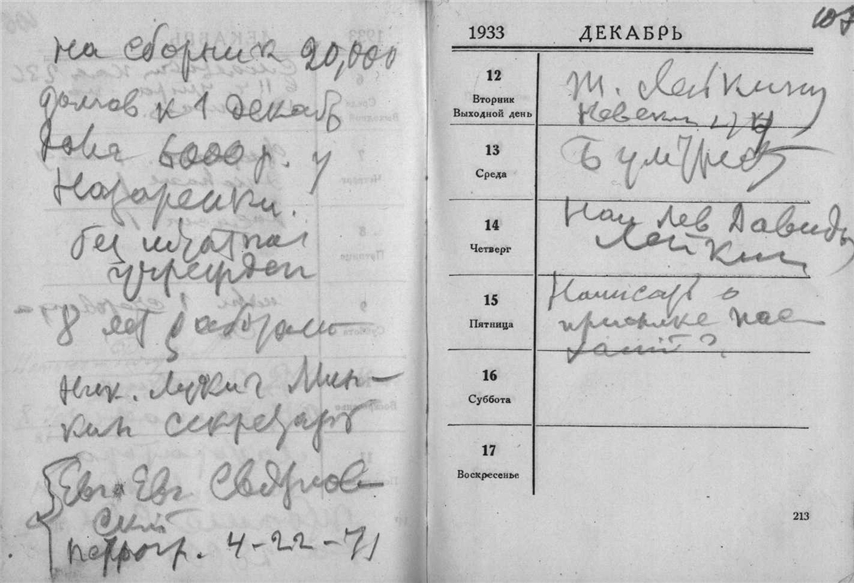 на сборник 20,000
домов к 1 декабр
6000 р. у
Назаренки.
без штатная
учрежден
8 лет работает
Ник. Лукич Мин-
кин секретарь
Евг. Евг Свердлов-
ский
петрогр. 4-22-71
1933 ДЕКАБРЬ
107
12
Вторник
Выходной день
т. Лейкину
Невский
13
Среда
Бумтрест
14
Четверг
Нач Лев Давиды
Лейкин
15
Пятница
Написать о
присылке пае
16
Суббота
17
Воскресенье
213